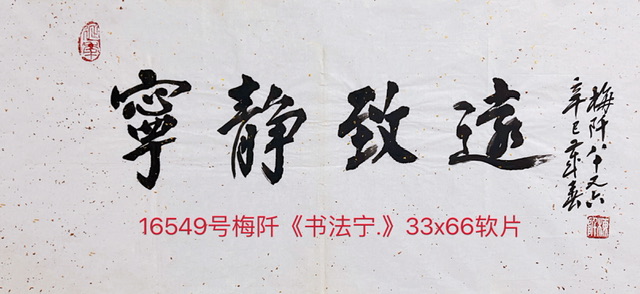 寧靜致遠
梅阡八十又六
辛巳年春
16549号梅阡《书法宁.》33x66软片